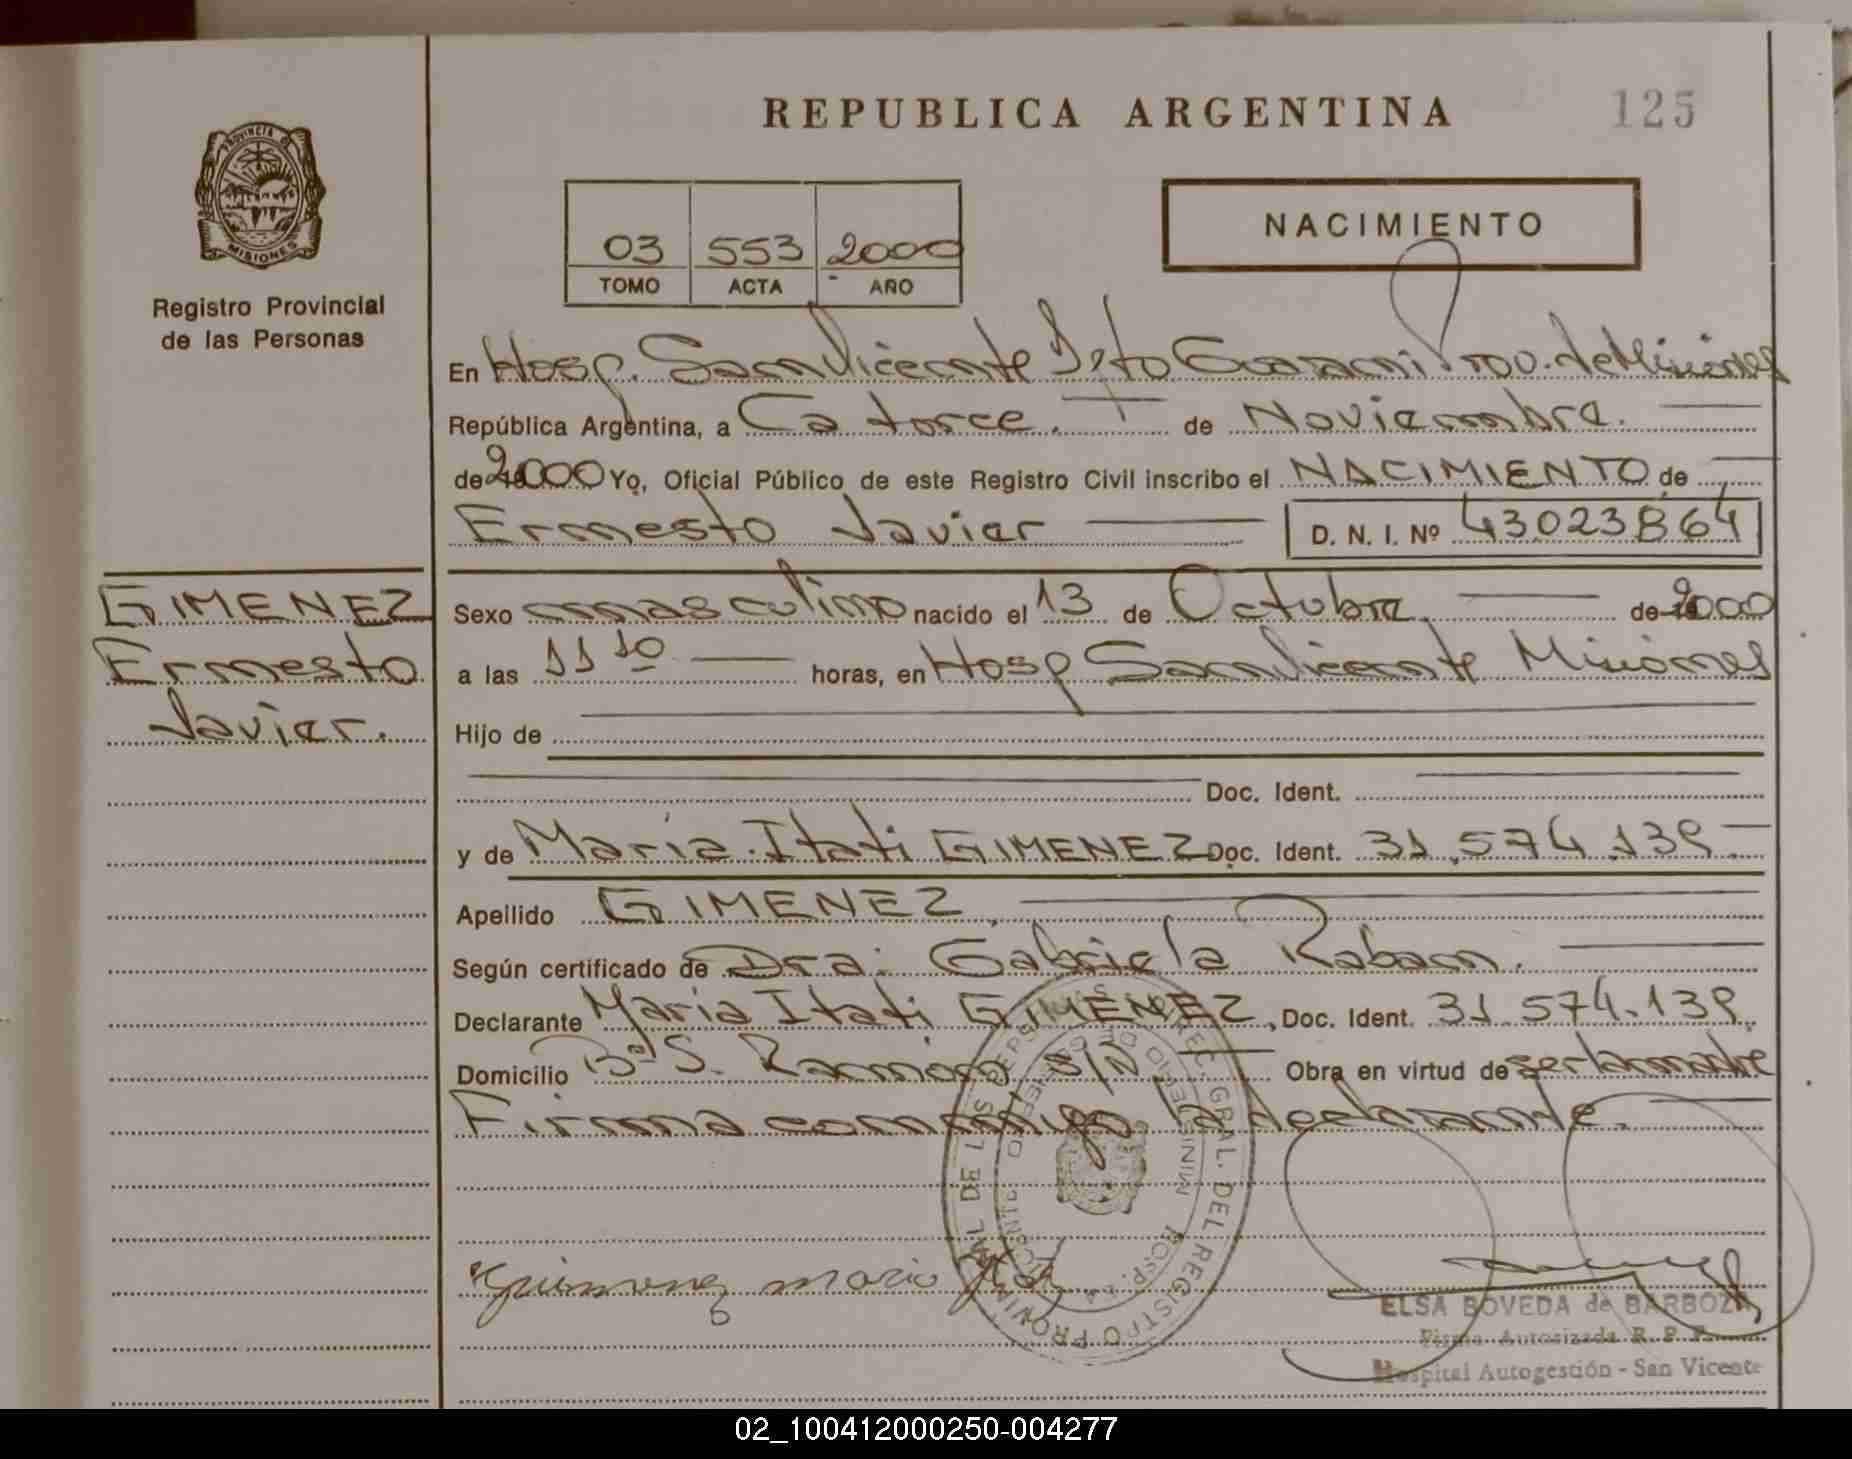 REPUBLICA ARGENTINA
125
PROVINCIA DE
MISIONES
Registro Provincial
de las Personas
03 553 2000
TOMO ACTA AÑO
NACIMIENTO
En Hosp. San Vicente Dpto Guarani Prov. de Misiones
República Argentina, a Catorce. de Noviembre.
de 2000 Yo, Oficial Público de este Registro Civil inscribo el NACIMIENTO de
Ernesto Javier D. N. I. Nº 43023864
GIMENEZ
Ernesto
Javier.
Sexo masculino nacido el 13 de Octubre de 2000
a las 11 10 horas, en Hosp San Vicente Misiones
Hijo de
Doc. Ident.
y de Maria Itati GIMENEZ Doc. Ident. 31.574.139
Apellido GIMENEZ
Según certificado de Dra. Gabriela Raban.
Declarante Maria Itati GIMENEZ, Doc. Ident. 31.574.139
Domicilio Bº S. Ramón S/N Obra en virtud de ser la madre
Firma conmigo la declarante.
ELSA BOVEDA de BARBOZA
Firma Autorizada R. P. P.
Hospital Autogestión - San Vicente
02_100412000250-004277